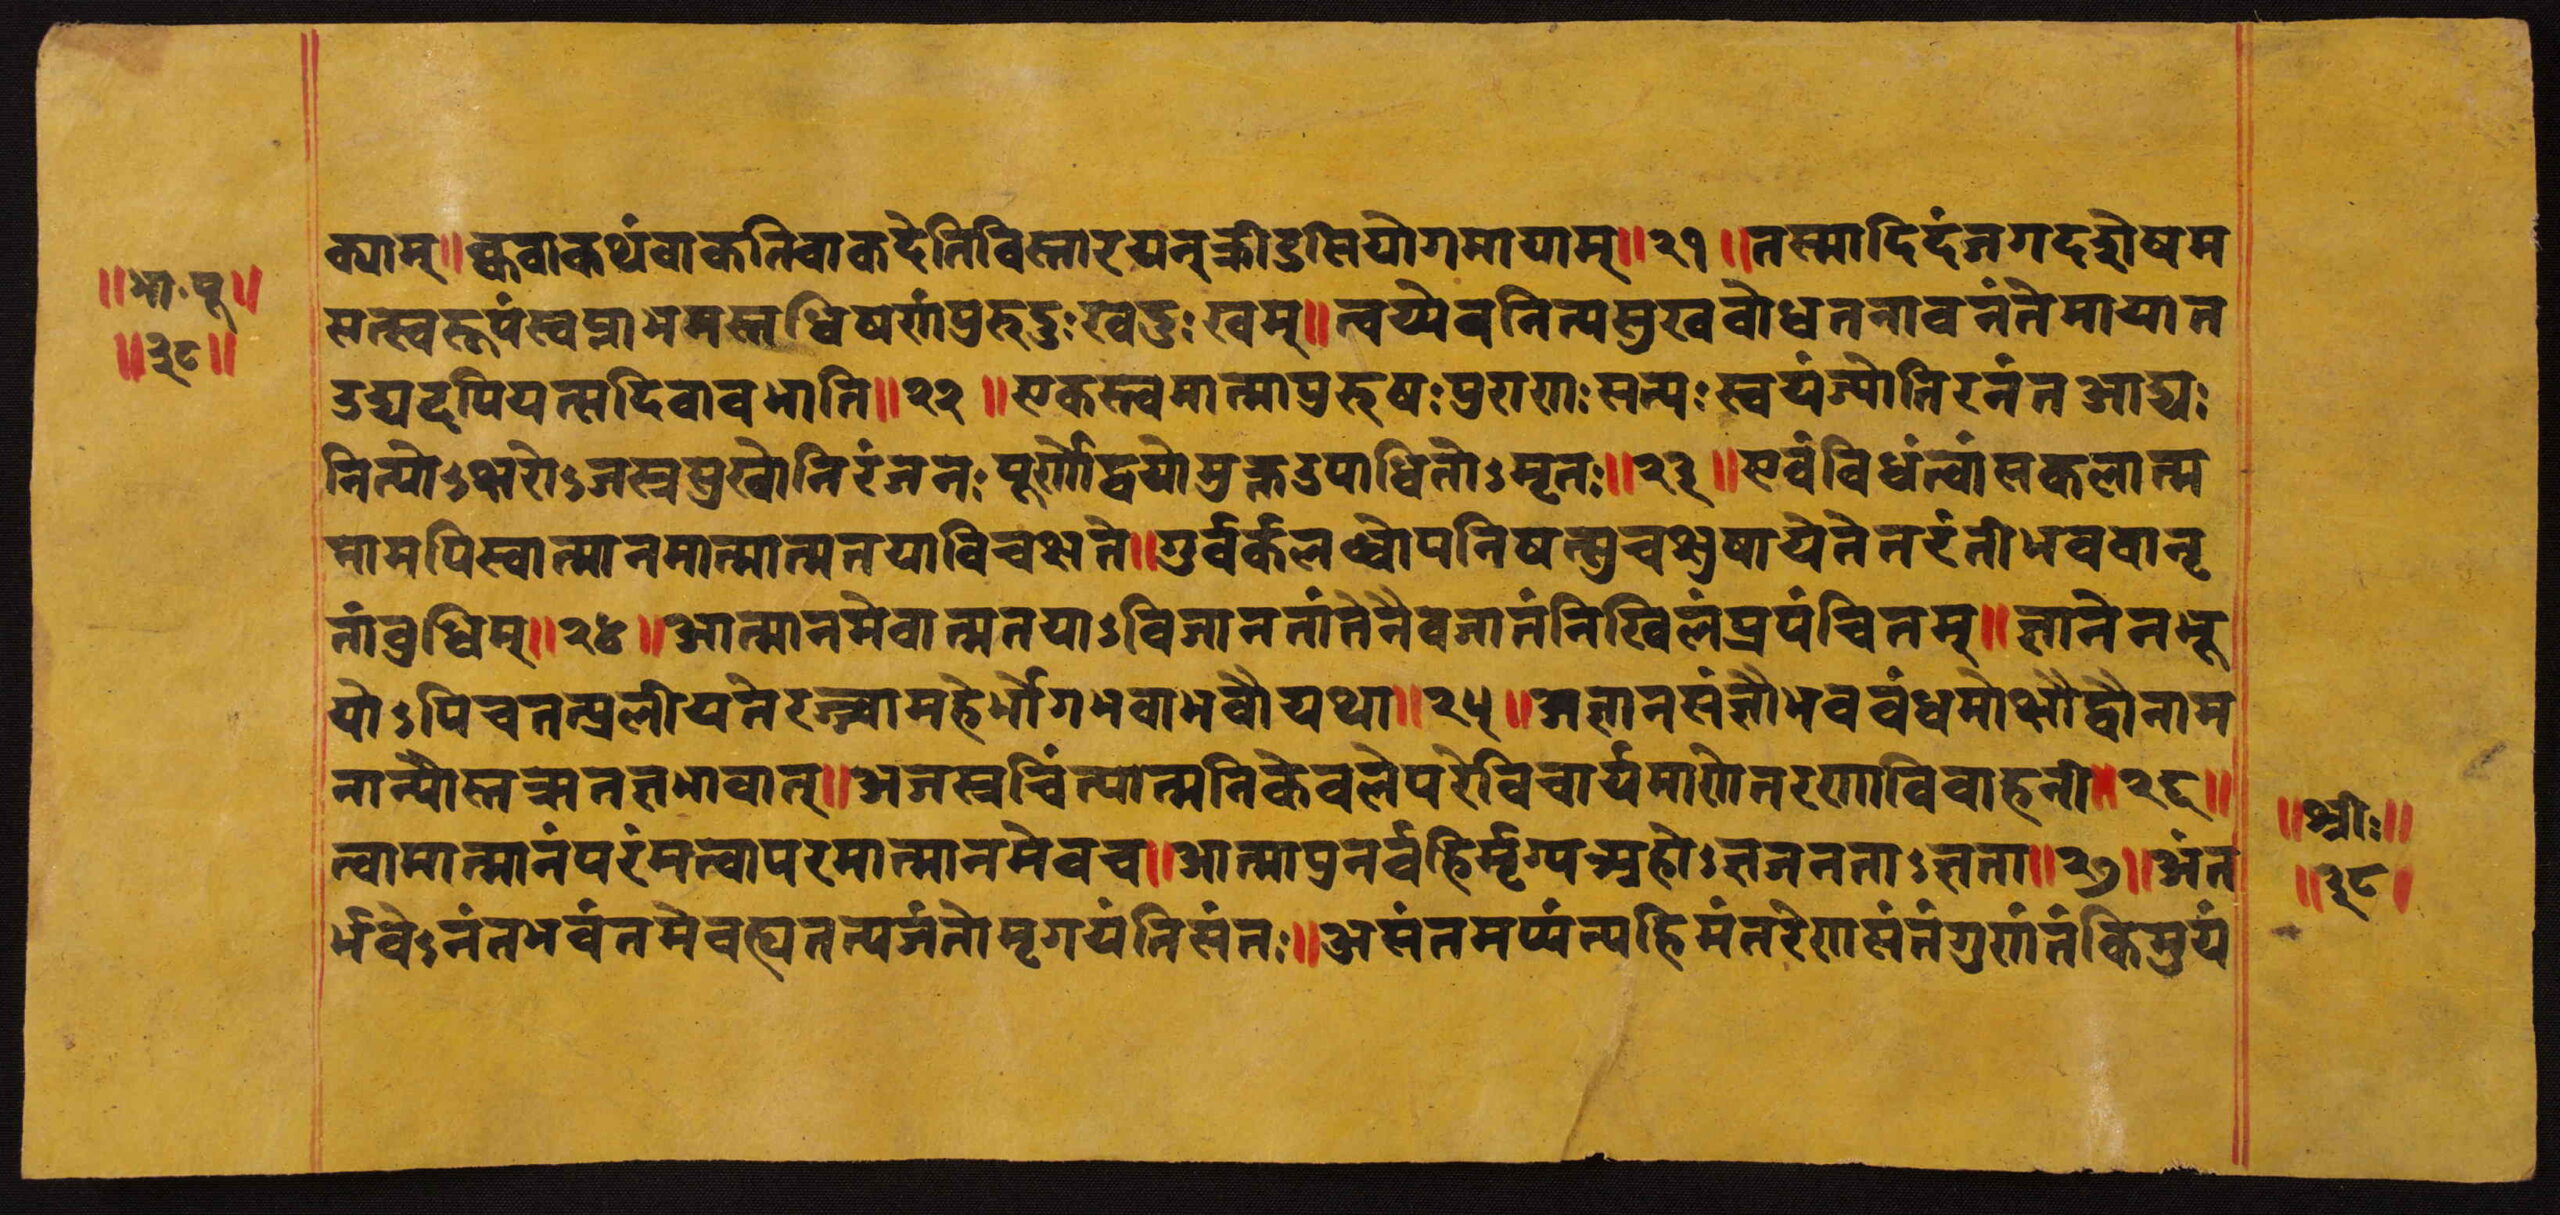 ॥भा.पू॥
॥३८॥
क्याम्॥क्ववाकथंवाकतिवाकदेतिविस्तारयन्क्रीडसियोगमायाम्॥२१॥तस्मादिदंजगदशेषम
सत्स्वरूपंस्वप्नाभमस्तधिषणंपुरुदुःखदुःखम्॥त्वय्येवनित्यसुखबोधतनावनंतेमायात
उद्यदपियत्सदिवावभाति॥२२॥एकस्त्वमात्मापुरुषःपुराणःसत्यःस्वयंज्योतिरनंतआद्यः
नित्योऽक्षरोऽजस्रसुखोनिरंजनःपूर्णोद्वयोमुक्तउपाधितोऽमृतः॥२३॥एवंविधंत्वांसकलात्म
मामपिस्वात्मानमात्मात्मतयाविचक्षते॥गुर्वर्कलब्धोपनिषत्सुचक्षुषायेतेतरंतीभववानृ
तांबुधिम्॥२४॥आत्मानमेवात्मतयाऽविजानतांतेनैवजातंनिखिलंप्रपंचितम्॥ज्ञानेनभू
योऽपिचतत्प्रलीयतेरज्ज्वामहेर्भोगभवाभवौयथा॥२५॥अज्ञानसंज्ञौभवबंधमोक्षौद्वौनाम
नान्यौस्तऋतज्ञभावात्॥अजस्रचिंत्यात्मनिकेवलेपरेविचार्यमाणेतरणाविवाहनी॥२६॥
त्वामात्मानंपरंमत्वापरमात्मानमेवच॥आत्मापुनर्वहिर्मृग्यअहोऽज्ञजनताऽज्ञता॥२७॥अंत
र्भवेऽनंतभवंतमेवह्यतत्त्यजंतोमृगयंतिसंतः॥असंतमप्यंत्यहिमंतरेणसंतंगुणंतंकिमुयं
॥श्रीः॥
॥३८॥